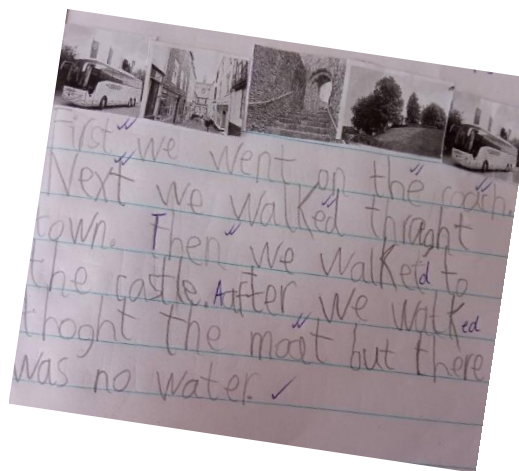 First we went on the coach.
Next we walked thraght
town. Then we walked to
the castle. After we walked
thoght the moat but there
was no water.